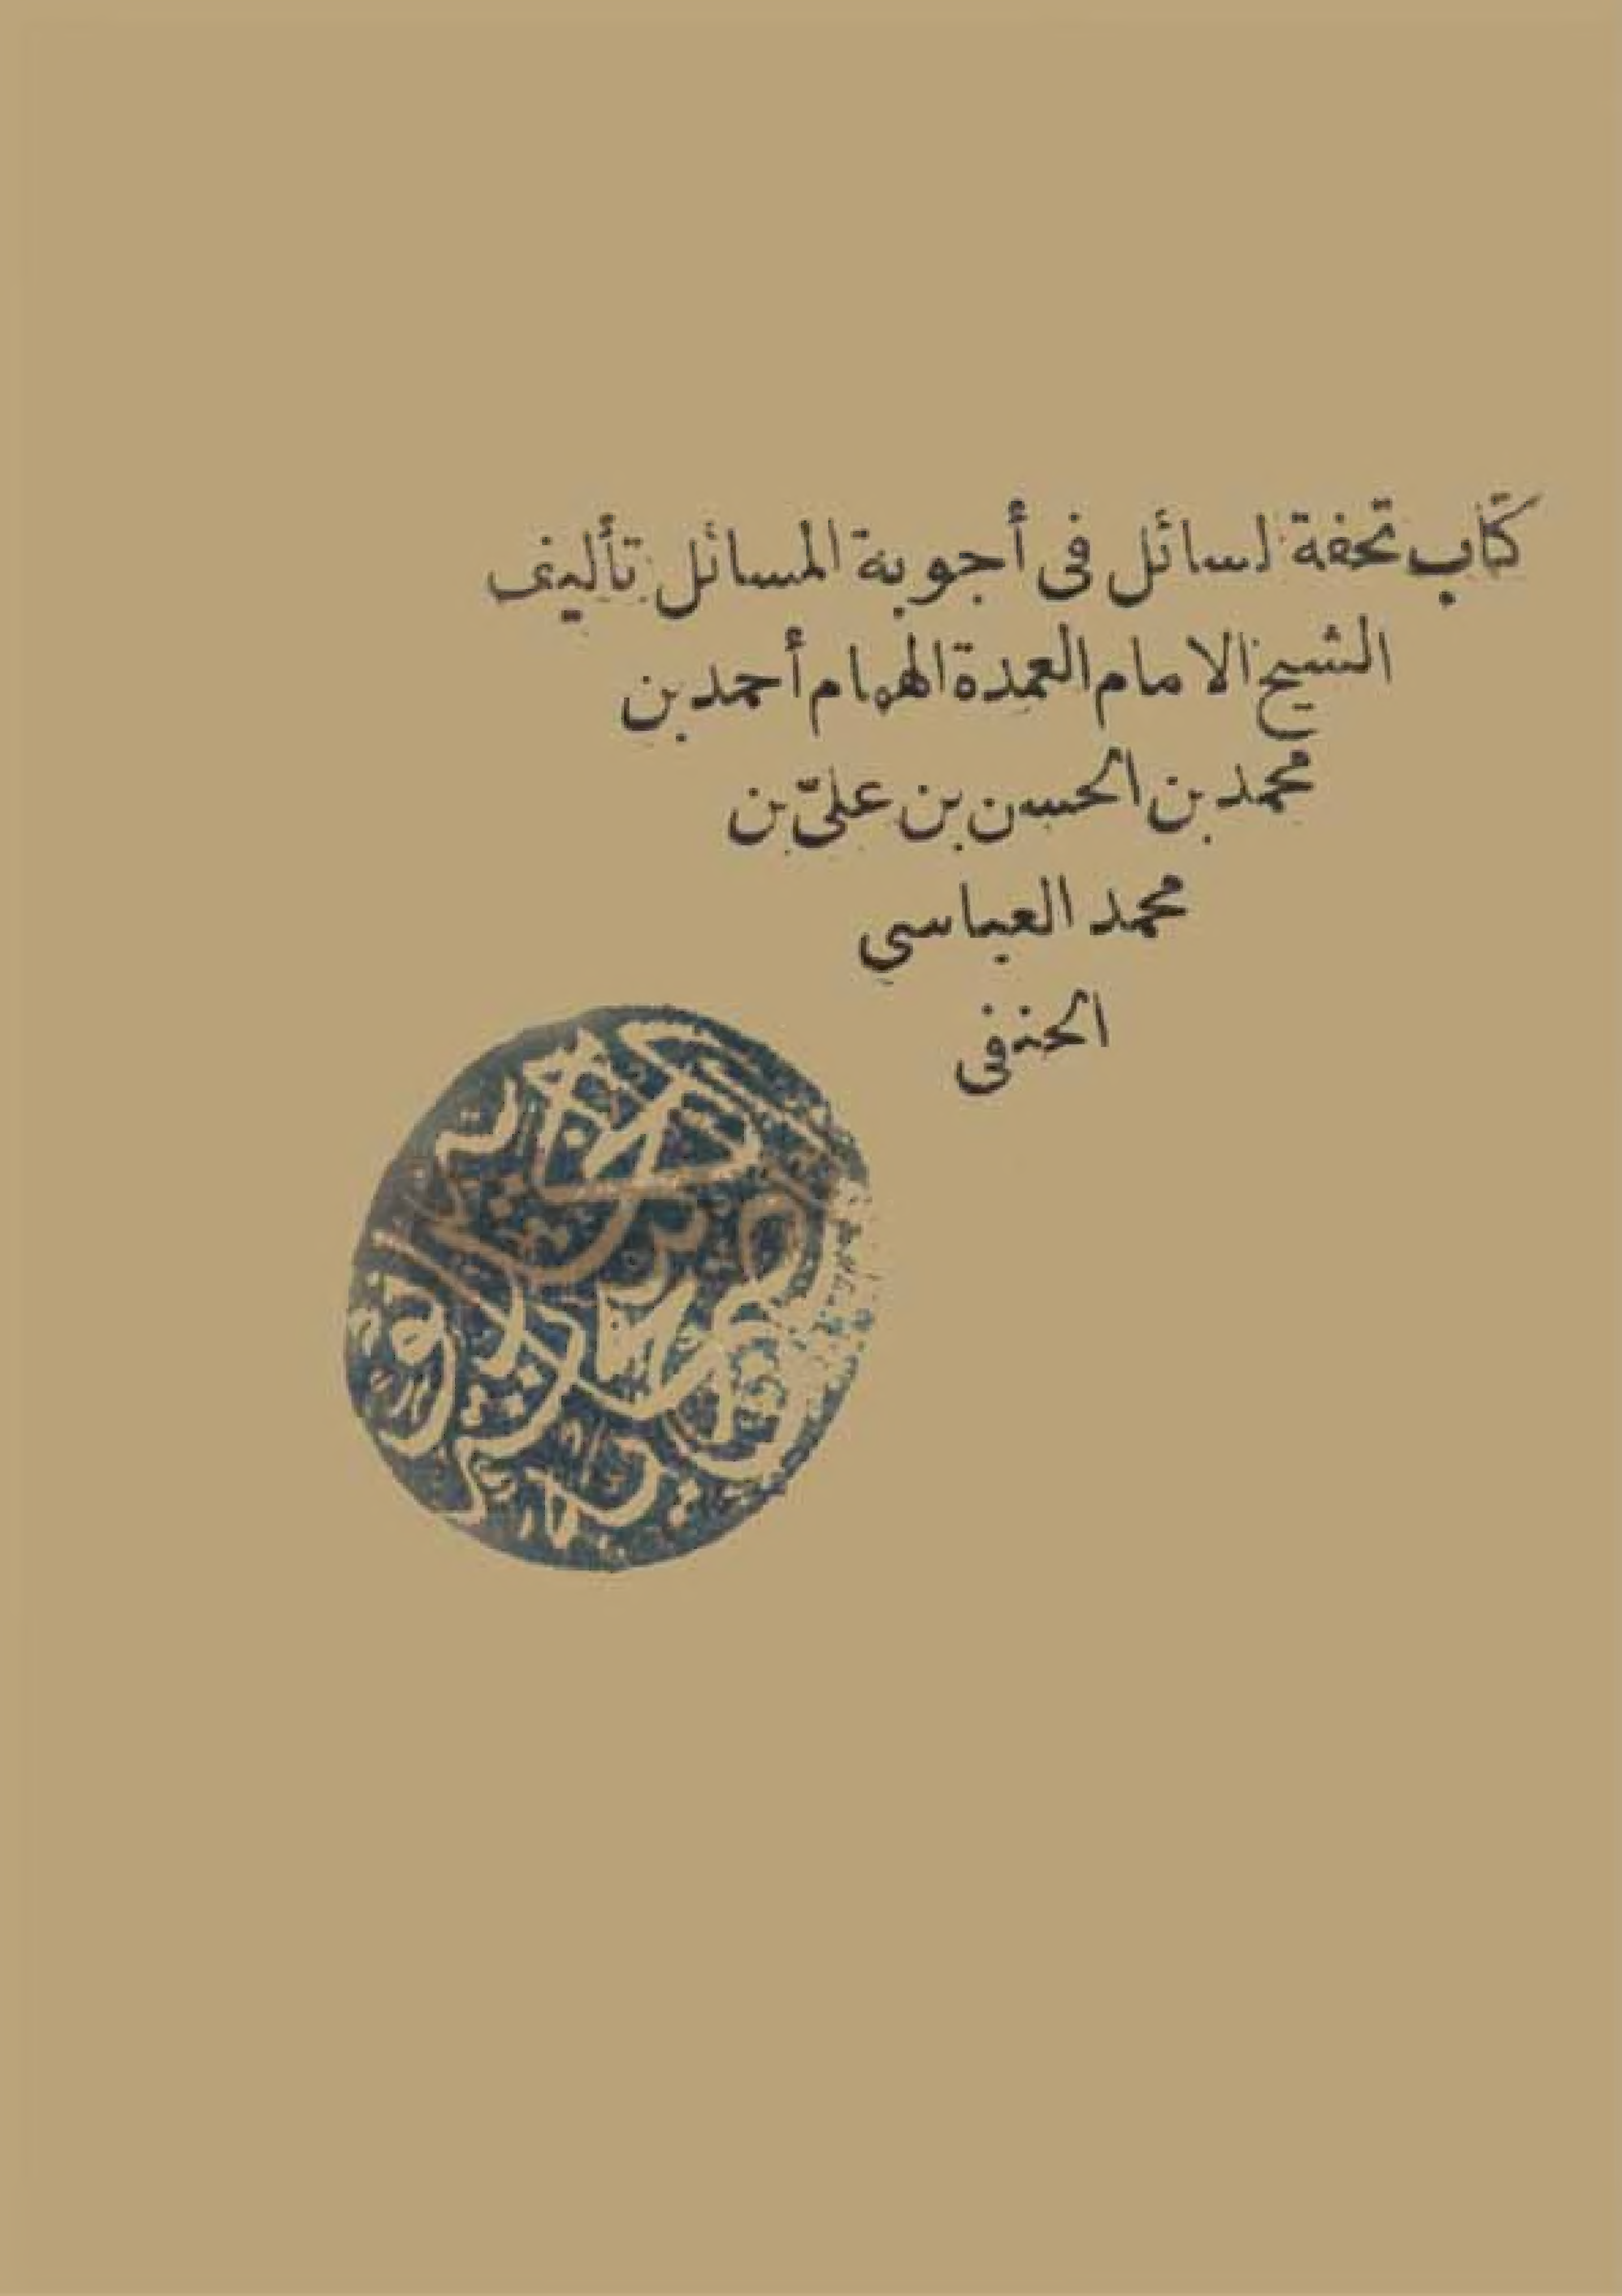 كتاب تحفة لسائل فى أجوبة المسائل تأليف
الشيخ الامام العمدة الهمام أحمد بن
محمد بن الحسن بن علىّ بن
محمد العباسي
الحنفى